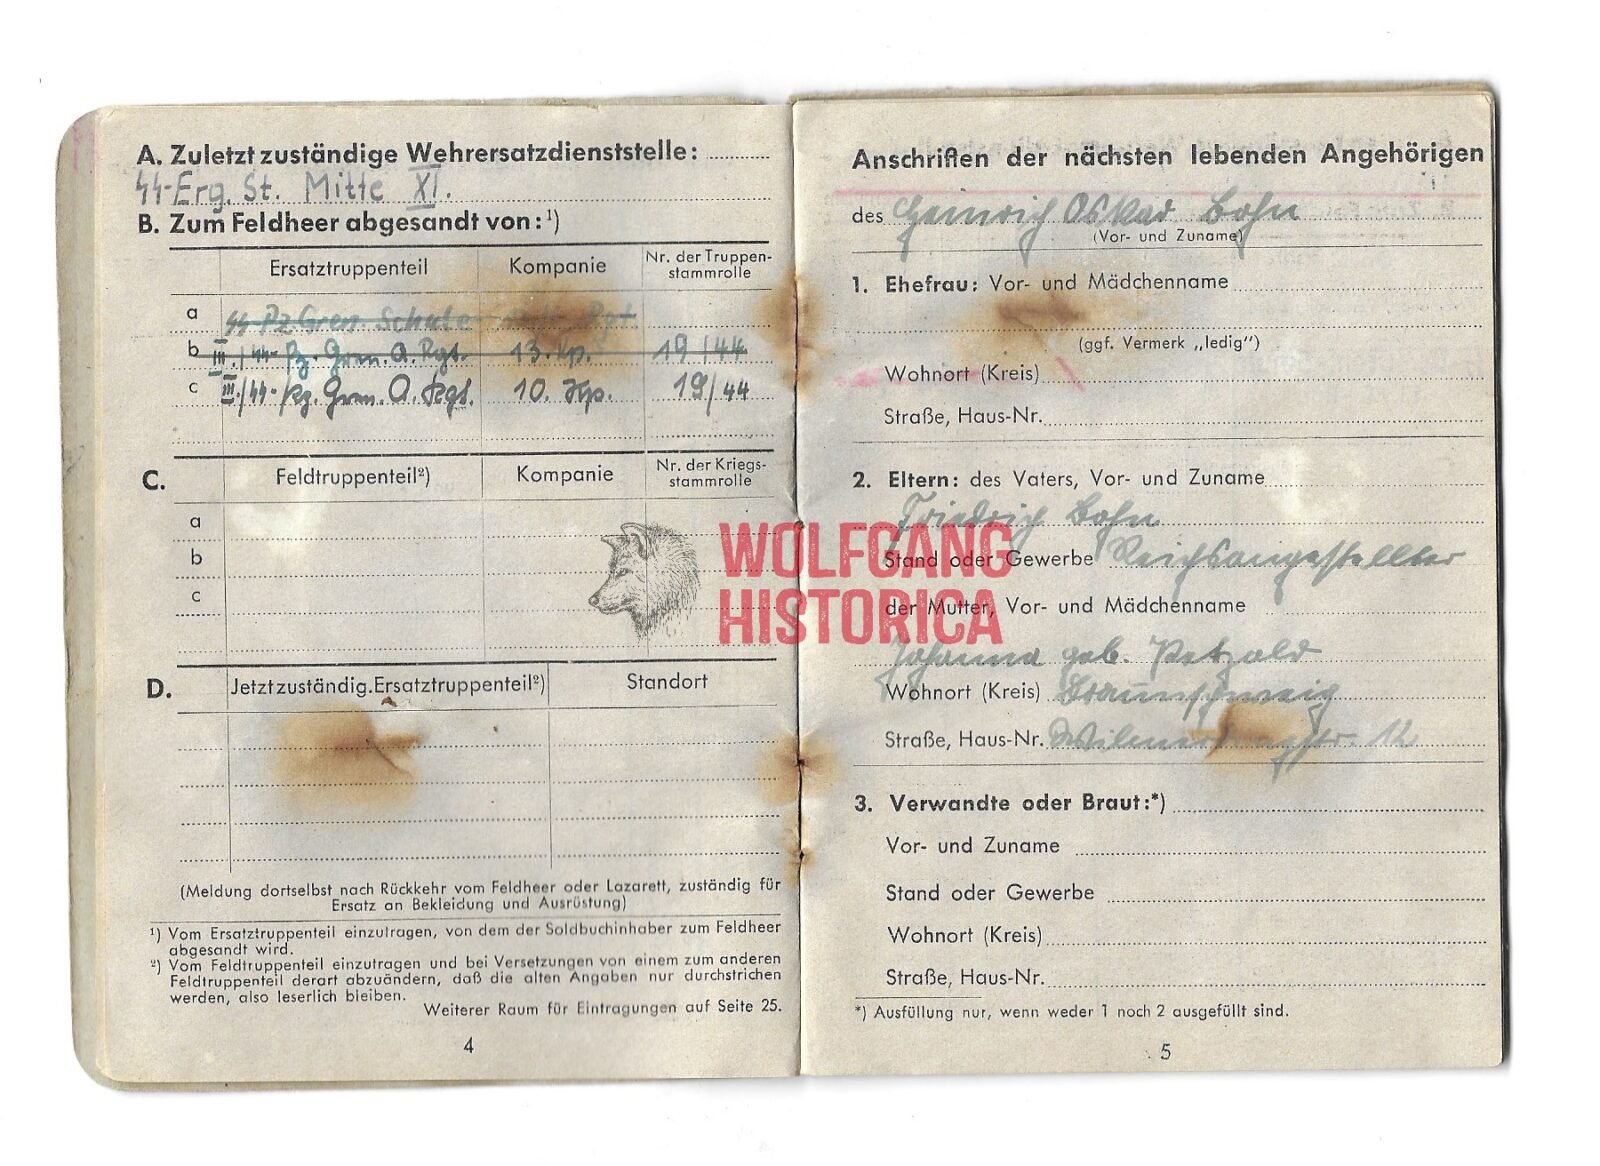 A. Zuletzt zuständige Wehrersatzdienststelle:
SS-Erg. St. Mitte XI.
B. Zum Feldheer abgesandt von:¹)
Ersatztruppenteil Kompanie Nr. der Truppen-
stammrolle
a SS-Pz Gren Schule Rgt.
b III./SS-Pz. Gren. A. Rgt. 13. Kp. 19/44
c III./SS-Pz. Gren. A. Rgt. 10. Kp. 19/44
C. Feldtruppenteil²) Kompanie Nr. der Kriegs-
stammrolle
a
b
c
D. Jetzt zuständig. Ersatztruppenteil²) Standort
(Meldung dortselbst nach Rückkehr vom Feldheer oder Lazarett, zuständig für
Ersatz an Bekleidung und Ausrüstung)
¹) Vom Ersatztruppenteil einzutragen, von dem der Soldbuchinhaber zum Feldheer
abgesandt wird.
²) Vom Feldtruppenteil einzutragen und bei Versetzungen von einem zum anderen
Feldtruppenteil derart abzuändern, daß die alten Angaben nur durchstrichen
werden, also leserlich bleiben.
Weiterer Raum für Eintragungen auf Seite 25.
4
Anschriften der nächsten lebenden Angehörigen
des Heinrich Oskar Bohn
(Vor- und Zuname)
1. Ehefrau: Vor- und Mädchenname
(ggf. Vermerk „ledig")
Wohnort (Kreis)
Straße, Haus-Nr.
2. Eltern: des Vaters, Vor- und Zuname
Friedrich Bohn
Stand oder Gewerbe Reichsangestellter
der Mutter, Vor- und Mädchenname
Johanna geb. Petzold
Wohnort (Kreis) Braunschweig
Straße, Haus-Nr. 12
3. Verwandte oder Braut:*)
Vor- und Zuname
Stand oder Gewerbe
Wohnort (Kreis)
Straße, Haus-Nr.
*) Ausfüllung nur, wenn weder 1 noch 2 ausgefüllt sind.
5
WOLFGANG
HISTORICA